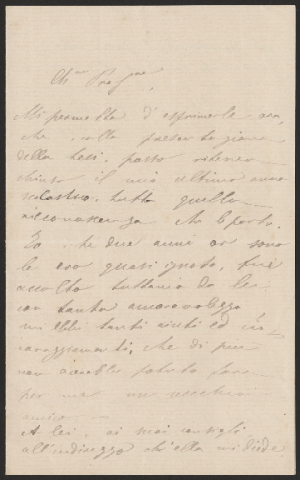 Ch.mo Prof.re,
Mi permetta d'esprimerle ora,
che colla presentazione
della tesi, posso ritenere
chiuso il mio ultimo anno
scolastico, tutta quella
riconoscenza che le porto.
Io che due anni or sono
le ero quasi ignoto, fui
accolto tuttavia da lei
con tanta amorevolezza
ed ebbi tanti aiuti ed inco-
raggiamenti, che di più
non avrebbe potuto fare
per me un vecchio
amico.
A lei, ai suoi consigli
all'indirizzo ch'ella mi diede